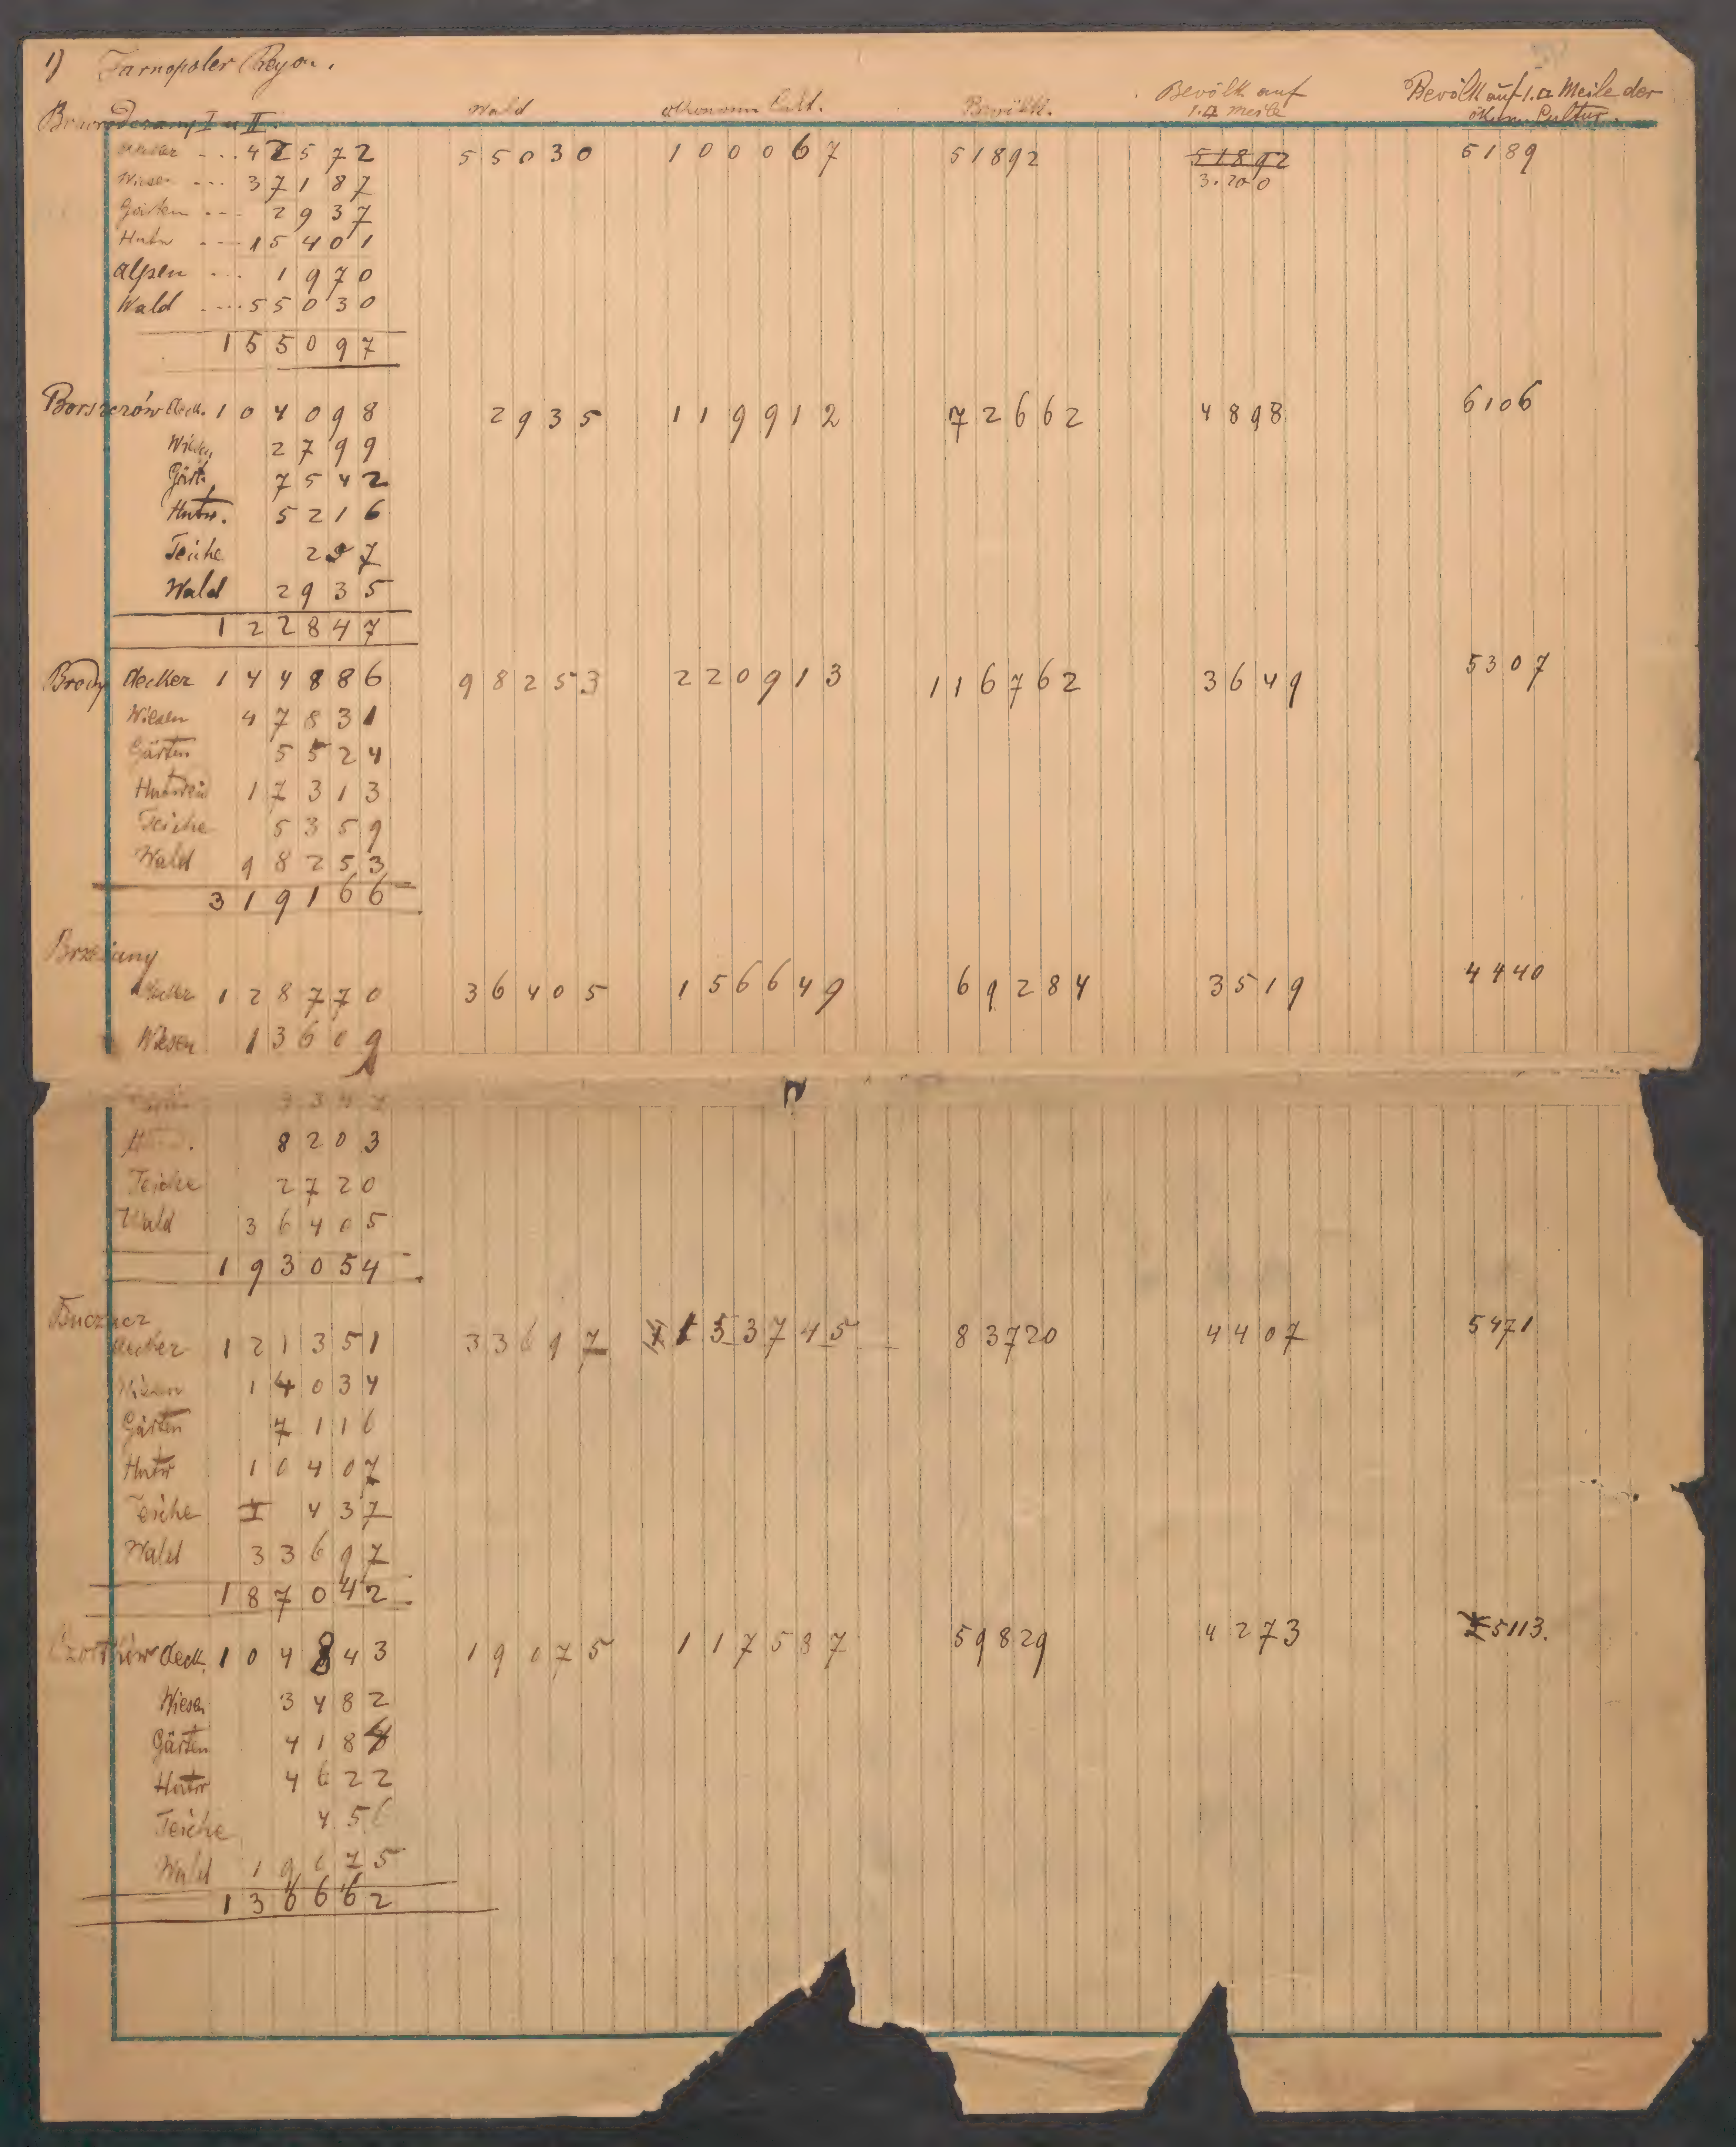 1) Tarnopoler Rayon.
Wald ökonom Cult. Bevölk. Bevölk auf 1.□ Meile Bevölk auf 1.□ Meile der ökonom Cultur.
I u II.
Aecker ... 42572 55030 100067 51892 51892 5189
Wiesen ... 37187 3.200
Gärten ... 2937
Hutw ... 15401
Alpen ... 1970
Wald .... 55030
155097
Borszczów Aeck. 104098 2935 119912 72662 4898 6106
Wiesen 2799
Gärt. 7542
Hutw. 5216
Teiche 297
Wald 2935
122847
Brody Aecker 144886 98253 220913 116762 3649 5307
Wiesen 47831
Gärten 5524
Hutweid 17313
Teiche 5359
Wald 98253
319166
Brzeżany
Aecker 128770 36405 156649 69284 3519 4440
Wiesen 13609
8203
Teiche 2720
Wald 36405
193054
Buczacz
Aecker 121351 33697 153745 83720 4407 5471
Wiesen 14034
Gärten 7116
Hutw 10407
Teiche 437
Wald 33697
187042
Czortków Aeck. 104843 19075 117587 59829 4273 5113.
Wiesen 3482
Gärten 4184
Hutw 4622
Teiche 456
Wald 19075
136662